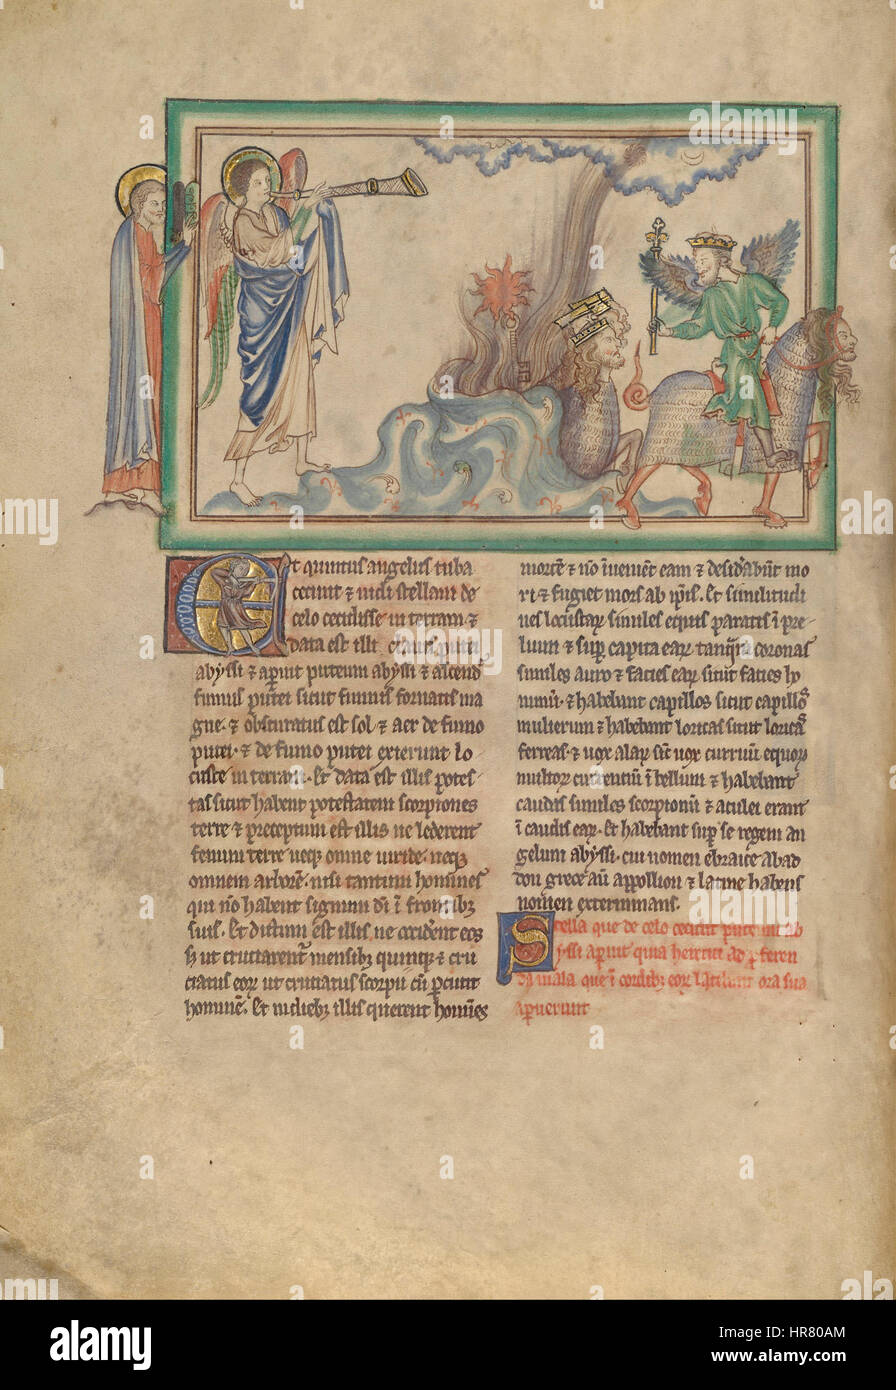 Et quintus angelus tuba
cecinit ⁊ uidi stellam de
celo cecidisse in terram ⁊
data est illi clauis putei
abyssi ⁊ aperuit puteum abyssi ⁊ ascend
fumus putei sicut fumus fornacis ma
gne. ⁊ obscuratus est sol ⁊ aer de fumo
putei. ⁊ de fumo putei exierunt lo
custe in terram. Et data est illis potes
tas sicut habent potestatem scorpiones
terre ⁊ preceptum est illis ne lederent
fenum terre neqȝ omne uiride. neqȝ
omnem arborē. nisi tantum homines
qui nō habent signum dī ī frontibȝ
suis. Et dictum est illis ne occiderent eos
sȝ ut cruciarentʳ mensibȝ quinqȝ ⁊ cru
ciatus eorȝ ut cruciatus scorpii cū ꝑcutit
hominē. Et in diebȝ illis querent homīes
mortē ⁊ nō īuenient eam ⁊ desidabūt mo
ri ⁊ fugiet mors ab ip̄is. Et similitudi
nes locustarȝ similes equis paratis ī pre-
lium ⁊ supʳ capita earȝ tanqȝ corone
similes auro ⁊ facies earȝ sicut facies ho
minū. ⁊ habebant capillos sicut capillos
mulierum ⁊ habebant loricas sicut loricas
ferreas. ⁊ uox alarȝ sic̄ uox curruū equorȝ
multorȝ currentiū ī bellum ⁊ habebant
caudas similes scorpionū ⁊ aculei erant
ī caudis earȝ. Et habebant supʳ se regem an
gelum abyssi. cui nomen ebraice abad
don grece aūt appollion ⁊ latine habens
nomen exterminans.
Stella que de celo cecidit puteum ab
yssi aperuit quia heretici ad ꝓferen
da mala que ī cordibȝ eorȝ latitabant ora sua
aperuerunt
alamy
alamy
Image ID: HR80AM
www.alamy.com